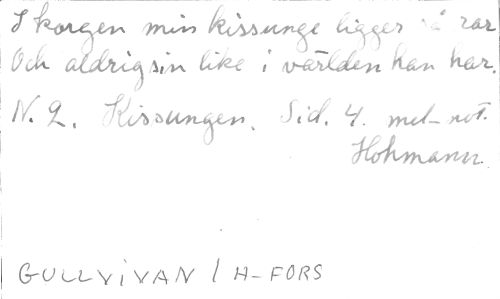 I korgen min kissunge ligger så rar
Och aldrig sin like i världen han har.
N. 2. Kissungen. Sid. 4. mel-not.
Hohmann.
GULLVIVAN / H-FORS